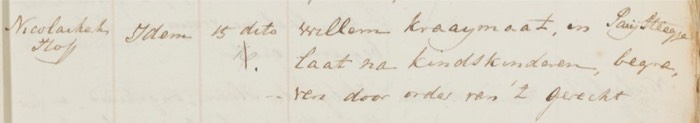 Nicolaikerk Idem 15 dito Willem Kraaymaat, in Paijsteege
Hoff X. laat na kindskinderen, begra,
ven door order van 't gerecht